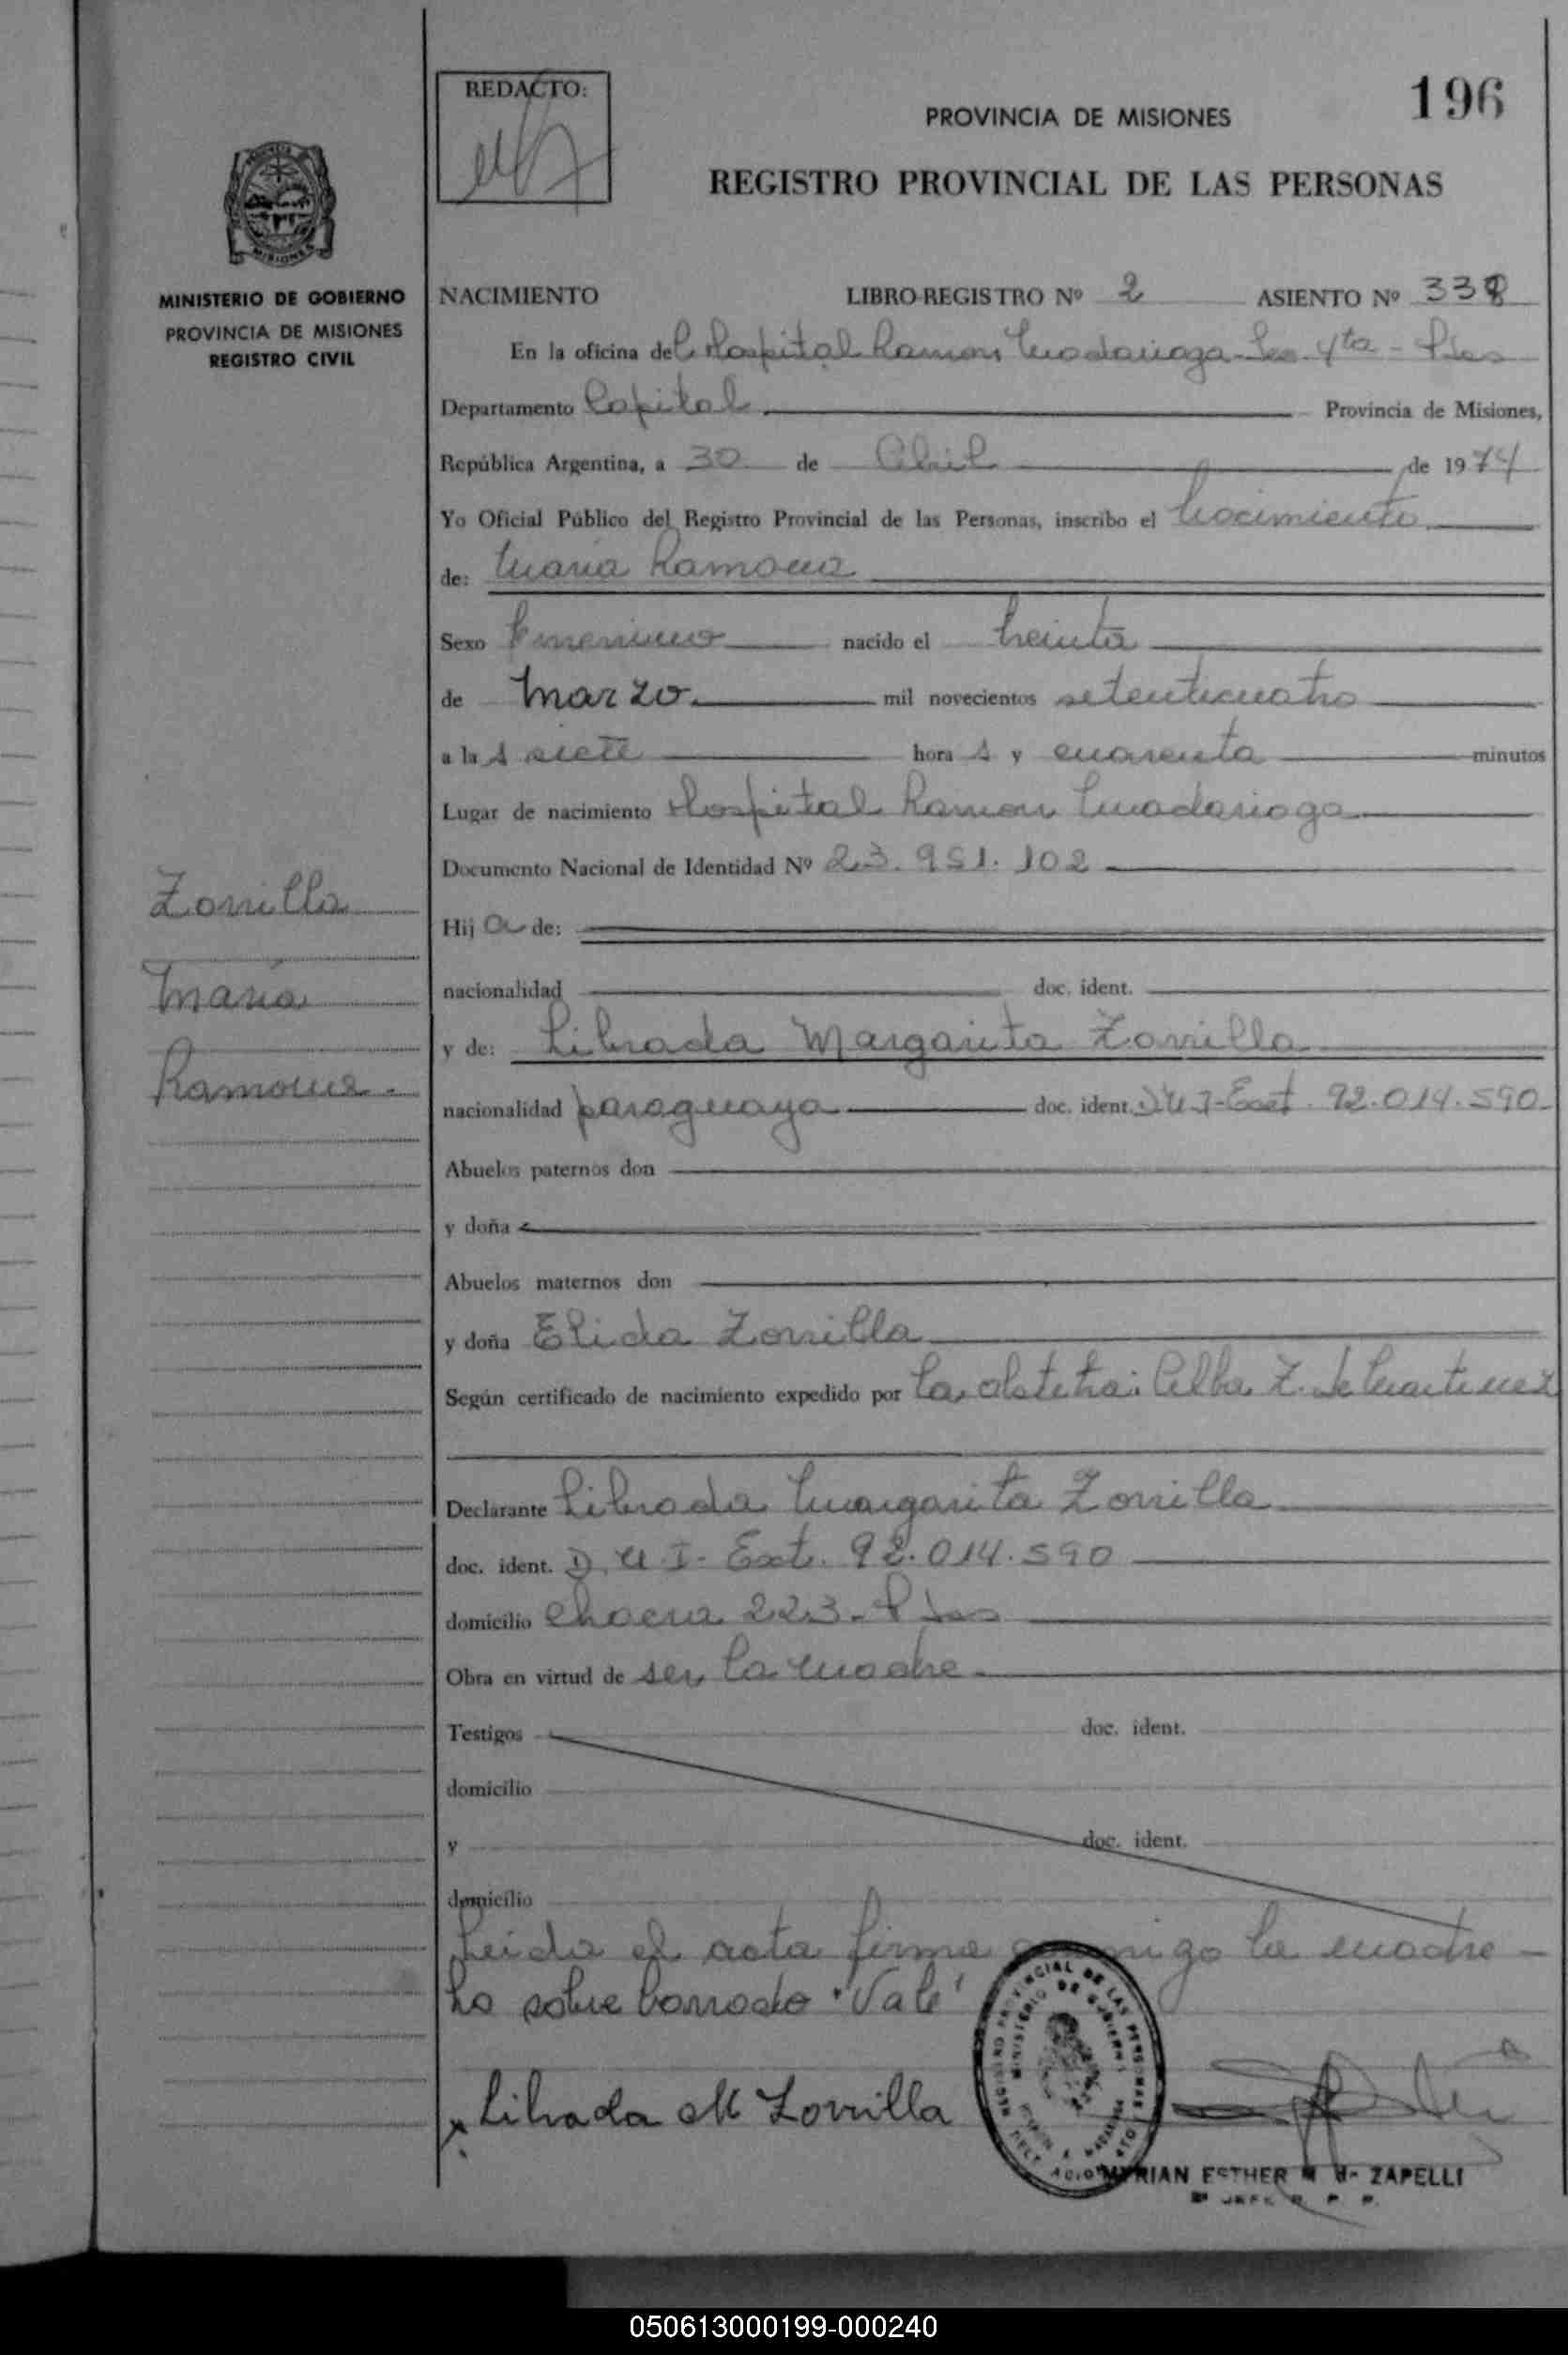 REDACTO:
PROVINCIA DE MISIONES
196
REGISTRO PROVINCIAL DE LAS PERSONAS
MISIONES
MINISTERIO DE GOBIERNO
PROVINCIA DE MISIONES
REGISTRO CIVIL
NACIMIENTO LIBRO REGISTRO Nº 2 ASIENTO Nº 338
En la oficina del Hospital Ramon Madariaga - Sec. 4ta - Pdas
Departamento Capital Provincia de Misiones,
República Argentina, a 30 de Abril de 1974
Yo Oficial Público del Registro Provincial de las Personas, inscribo el Nacimiento
de: Maria Ramona
Sexo Femenino nacido el treinta
de Marzo mil novecientos setenticuatro
a las siete horas y cuarenta minutos
Lugar de nacimiento Hospital Ramon Madariaga
Documento Nacional de Identidad Nº 23.951.102
Zorrilla
Maria
Ramona.-
Hija de:
nacionalidad doc. ident.
y de: Librada Margarita Zorrilla
nacionalidad paraguaya doc. ident. D.U.I-Ext. 92.014.590
Abuelos paternos don
y doña
Abuelos maternos don
y doña Elida Zorrilla
Según certificado de nacimiento expedido por la obstetra: Alba Z. de Martinez
Declarante Librada Margarita Zorrilla
doc. ident. D.U.I- Ext. 92.014.590
domicilio Chacra 223 - Pdas
Obra en virtud de ser la madre
Testigos doc. ident.
domicilio
y doc. ident.
domicilio
Leida el acta firma conmigo la madre -
ho sobre borrado "Vale"
Librada M Zorrilla
REGISTRO PROVINCIAL DE LAS PERSONAS
MINISTERIO DE GOBIERNO
MYRIAN ESTHER ZAPELLI
JEFE R. P. P.
050613000199-000240